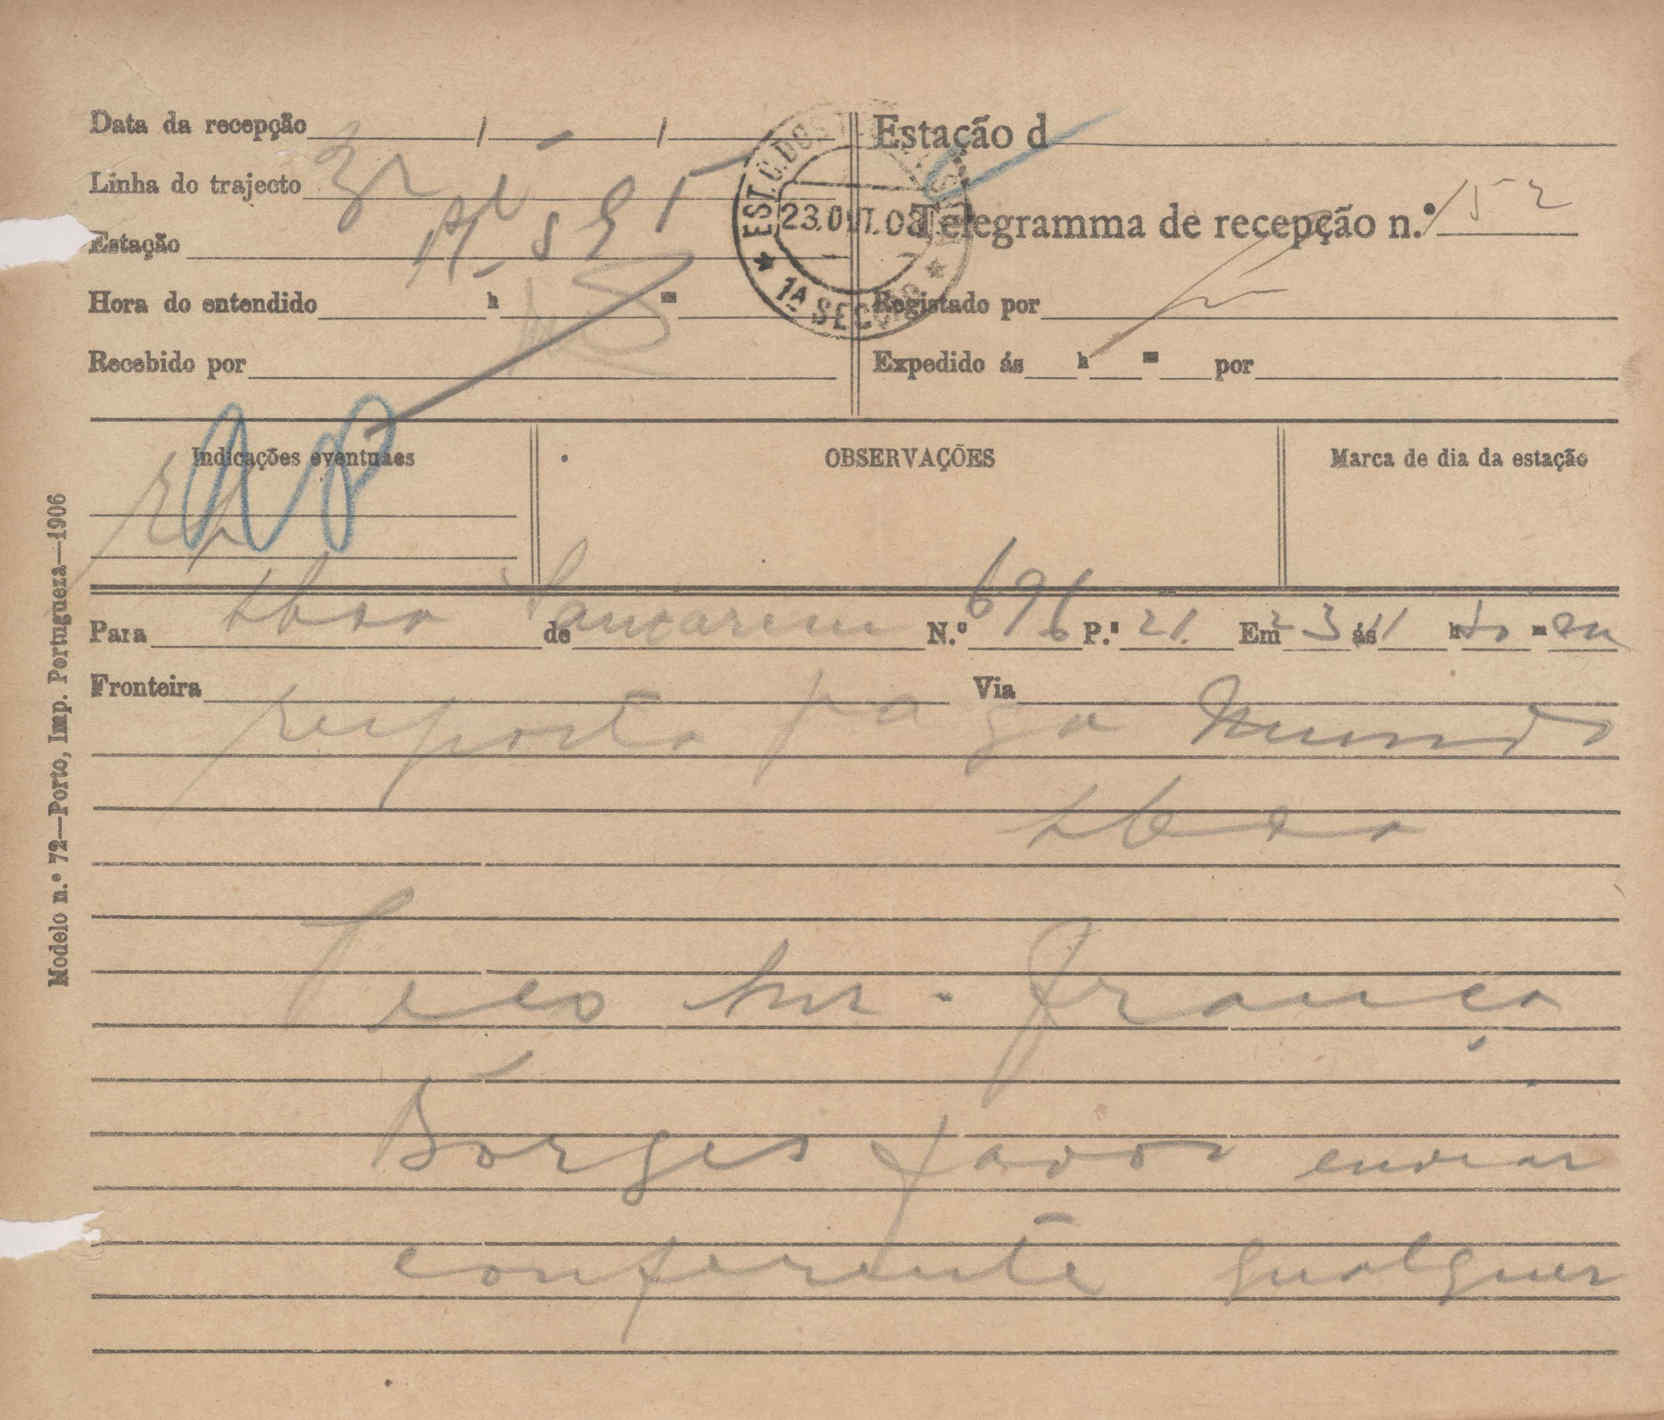 Data da recepção / - /
Linha do trajecto
Estação
Hora do entendido h m
Recebido por
Estação d
Telegramma de recepção n.º 152
Registado por
Expedido ás h m por
EST. C. DOS
23.OUT.08
1ª SECÇÃO
Indicações eventuaes
OBSERVAÇÕES
Marca de dia da estação
Rp
Para Lboa de Santarem N.º 696 P.s 21 Em 23 ás 11 h m
Fronteira Via
resposta paga Mundo
Lboa
Snr. França
Borges favor enviar
conferente qualquer
Modelo n.º 72—Porto, Imp. Portugueza—1906